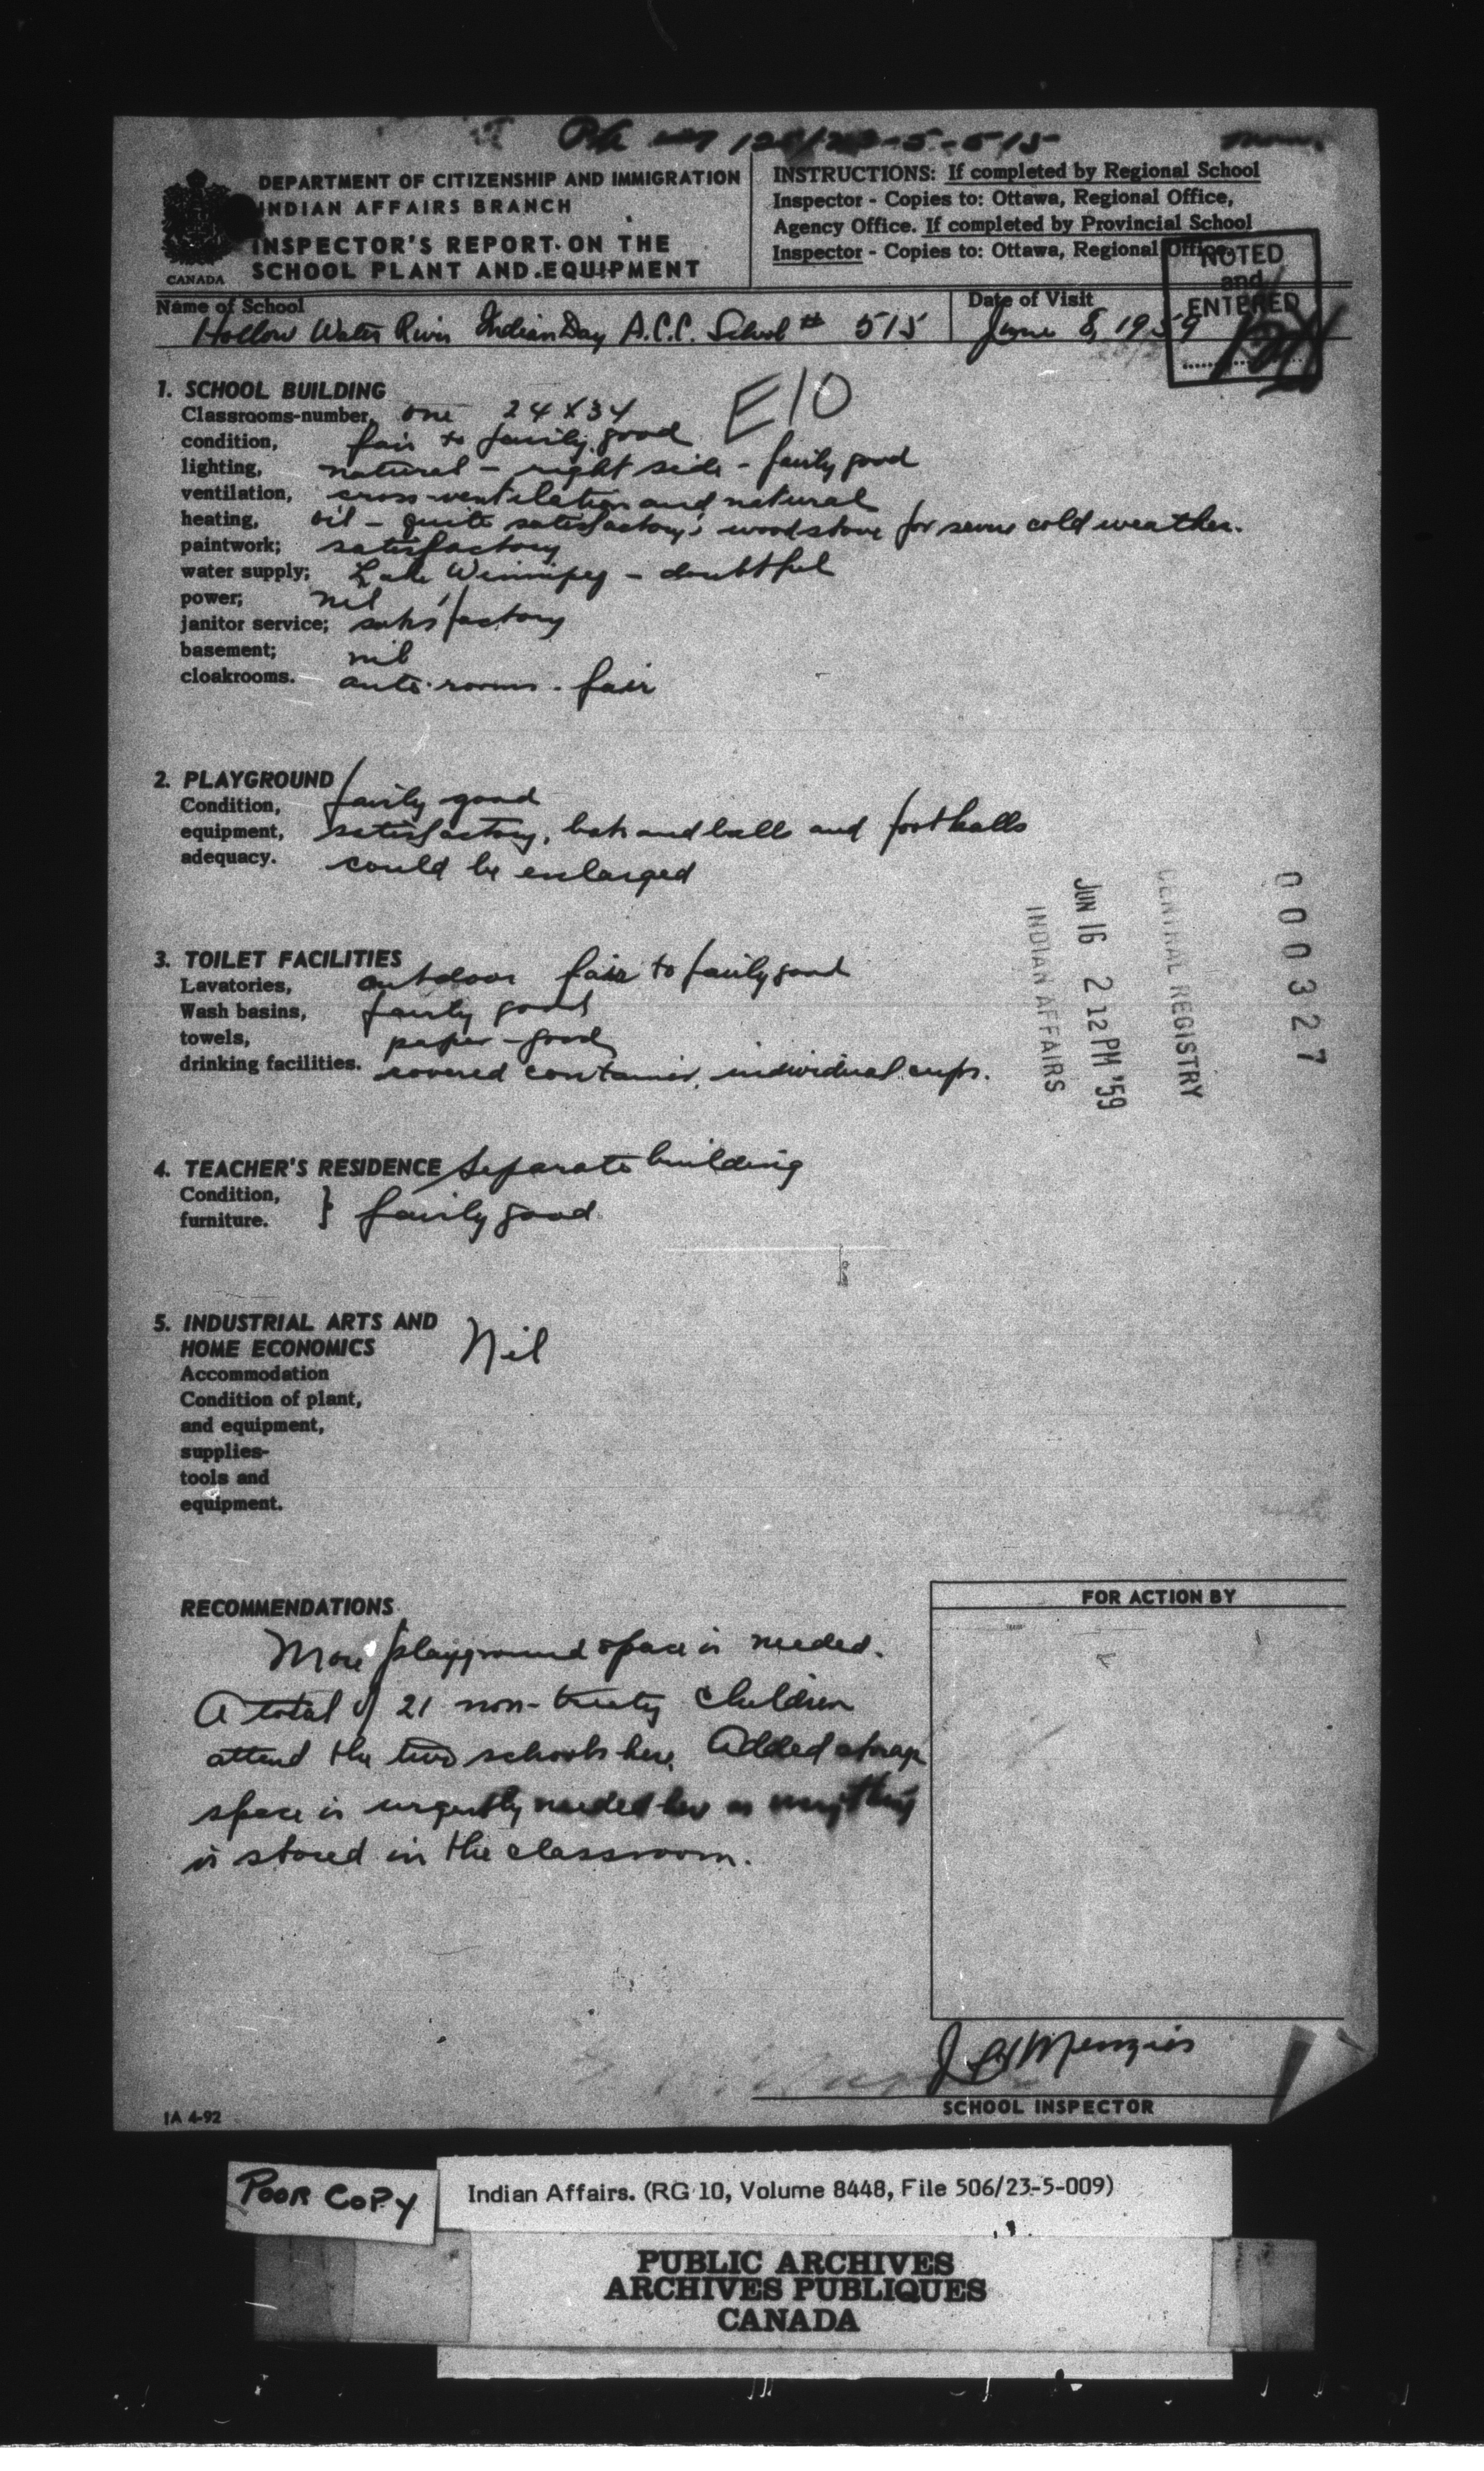 DEPARTMENT OF CITIZENSHIP AND IMMIGRATION
INDIAN AFFAIRS BRANCH
INSPECTOR'S REPORT ON THE
SCHOOL PLANT AND EQUIPMENT
CANADA
INSTRUCTIONS: If completed by Regional School
Inspector - Copies to: Ottawa, Regional Office,
Agency Office. If completed by Provincial School
Inspector - Copies to: Ottawa, Regional Office
NOTED
and
ENTERED
Name of School
Hollow Water River Indian Day A.C.C. School # 515
Date of Visit
June 8, 1959
E10
1. SCHOOL BUILDING
Classrooms-number, one 24 X 34
condition, fair to fairly good
lighting, natural - right side - fairly good
ventilation, cross-ventilation and natural
heating, oil - quite satisfactory; wood stove for severe cold weather.
paintwork; satisfactory
water supply; Lake Winnipeg - doubtful
power; nil
janitor service; satisfactory
basement; nil
cloakrooms. ante-rooms - fair
2. PLAYGROUND
Condition, fairly good
equipment, satisfactory, bats and balls and footballs
adequacy. could be enlarged
3. TOILET FACILITIES
Lavatories, outdoor fair to fairly good
Wash basins, fairly good
towels, paper - good
drinking facilities. covered container, individual cups.
000327
CENTRAL REGISTRY
JUN 16 2 12 PM '59
INDIAN AFFAIRS
4. TEACHER'S RESIDENCE Separate building
Condition,
furniture. } fairly good
5. INDUSTRIAL ARTS AND
HOME ECONOMICS Nil
Accommodation
Condition of plant,
and equipment,
supplies-
tools and
equipment.
RECOMMENDATIONS
More playground space is needed.
A total of 21 non-treaty children
attend the two schools here. Added storage
space is urgently needed here as everything
is stored in the classroom.
FOR ACTION BY
Menzies
SCHOOL INSPECTOR
IA 4-92
POOR COPY
Indian Affairs. (RG 10, Volume 8448, File 506/23-5-009)
PUBLIC ARCHIVES
ARCHIVES PUBLIQUES
CANADA